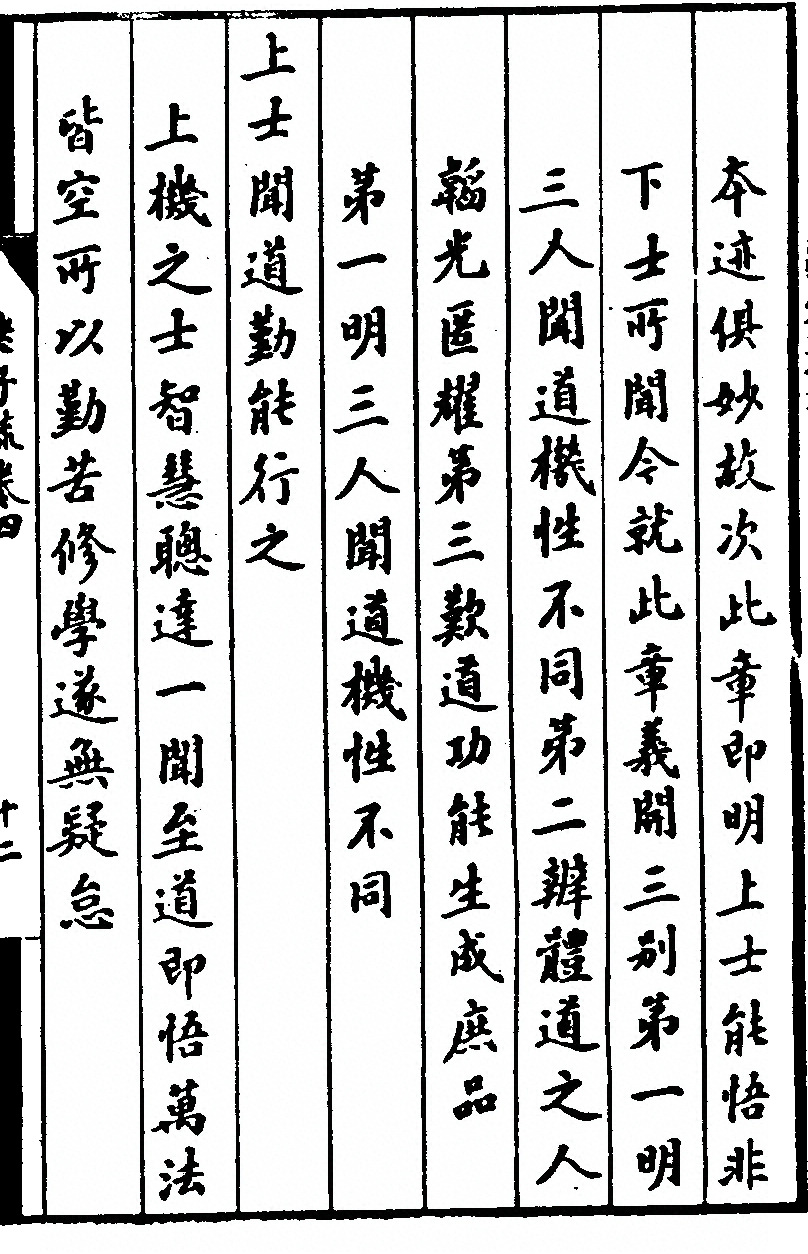 本迹俱妙故次此章即明上士能悟非
下士所聞令就此章義開三別第一明
三人聞道機性不同第二辯體道之人
韜光匿耀第三歎道功能生成庶品
第一明三人聞道機性不同
上士聞道勤能行之
上機之士智慧聰達一聞至道即悟萬法
皆空所以勤苦修學遂無疑怠
老子疏卷四
十二